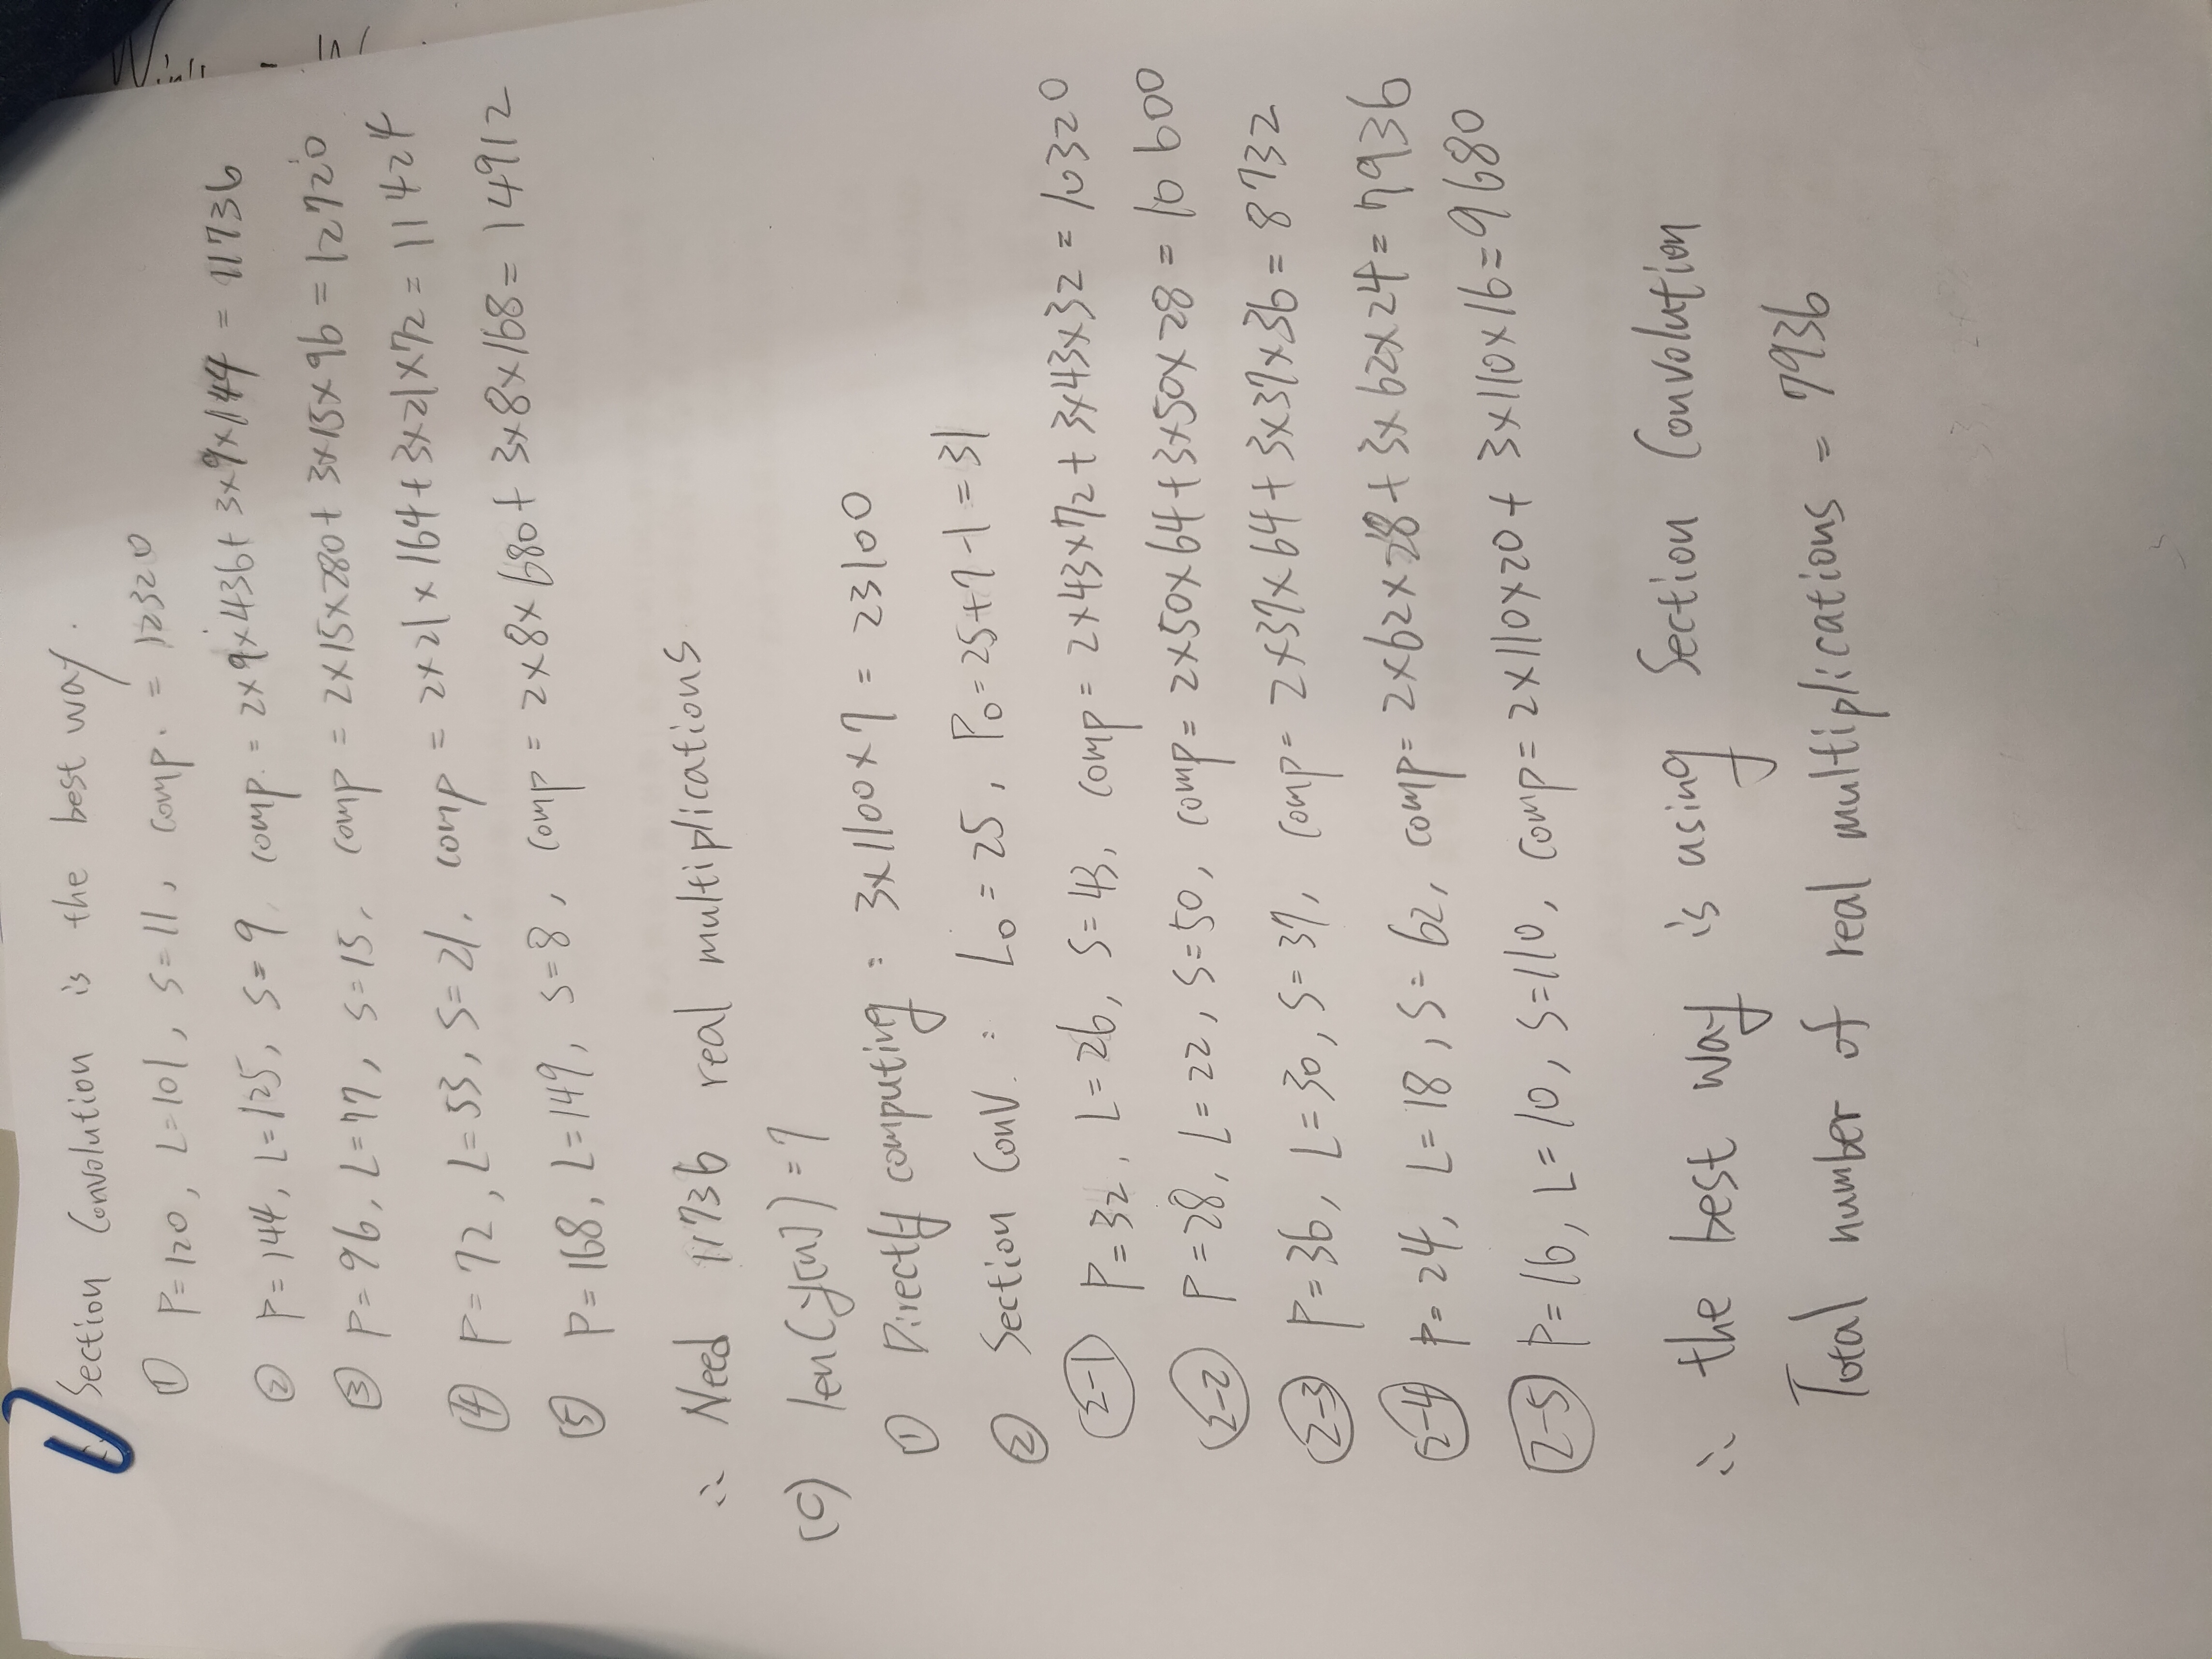 Section Convolution is the best way.
① P=120, L=101, S=11, comp. = 12320
② P=144, L=125, S=9, comp. = 2×9×436+3×9×144 = 11736
③ P=96, L=77, S=15, comp = 2×15×280+3×15×96 = 12720
④ P=72, L=53, S=21, comp = 2×21×164+3×21×72 = 11424
⑤ P=168, L=149, S=8, comp = 2×8×680+3×8×168 = 14912
∴ Need 11736 real multiplications
(c) len(y[n]) = 7
① Directly computing : 3×1100×7 = 23100
② Section Conv. : L₀ = 25, P₀ = 25+7-1 = 31
2-1 P=32, L=26, S=43, comp = 2×43×72+3×43×32 = 10320
2-2 P=28, L=22, S=50, comp = 2×50×64+3×50×28 = 10600
2-3 P=36, L=30, S=37, comp = 2×37×64+3×37×36 = 8732
2-4 P=24, L=18, S=62, comp = 2×62×28+3×62×24 = 7936
2-5 P=16, L=10, S=110, comp = 2×110×20+3×110×16 = 9680
∴ the best way is using Section Convolution
Total number of real multiplications = 7936